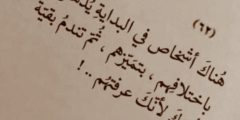 (٦٢)
هُناكَ أشخاص في البدايةِ
باختلافِهم ، بتميّزهم ، ثُمّ تندمُ بقيّة
لأنّكَ عرفتهُم ..!